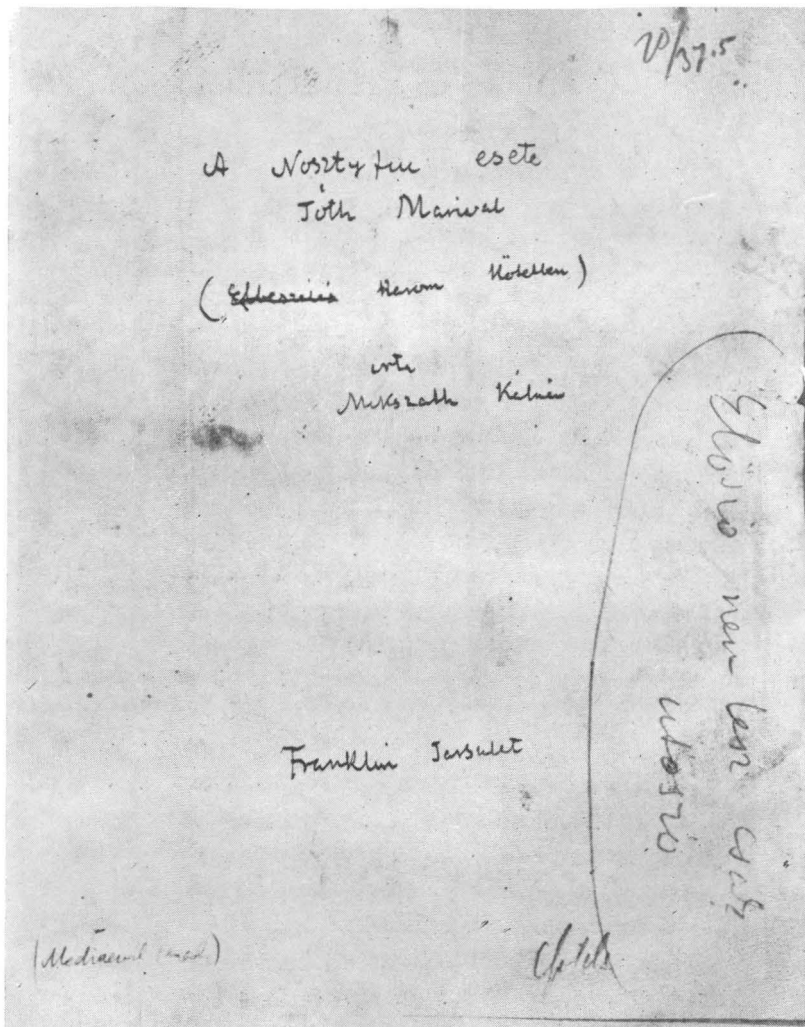 A Noszty fiu esete
Tóth Marival
(Elbeszélés három kötetben)
irta
Mikszáth Kálmán
Franklin Társulat
Előszó nem lesz csak
utószó